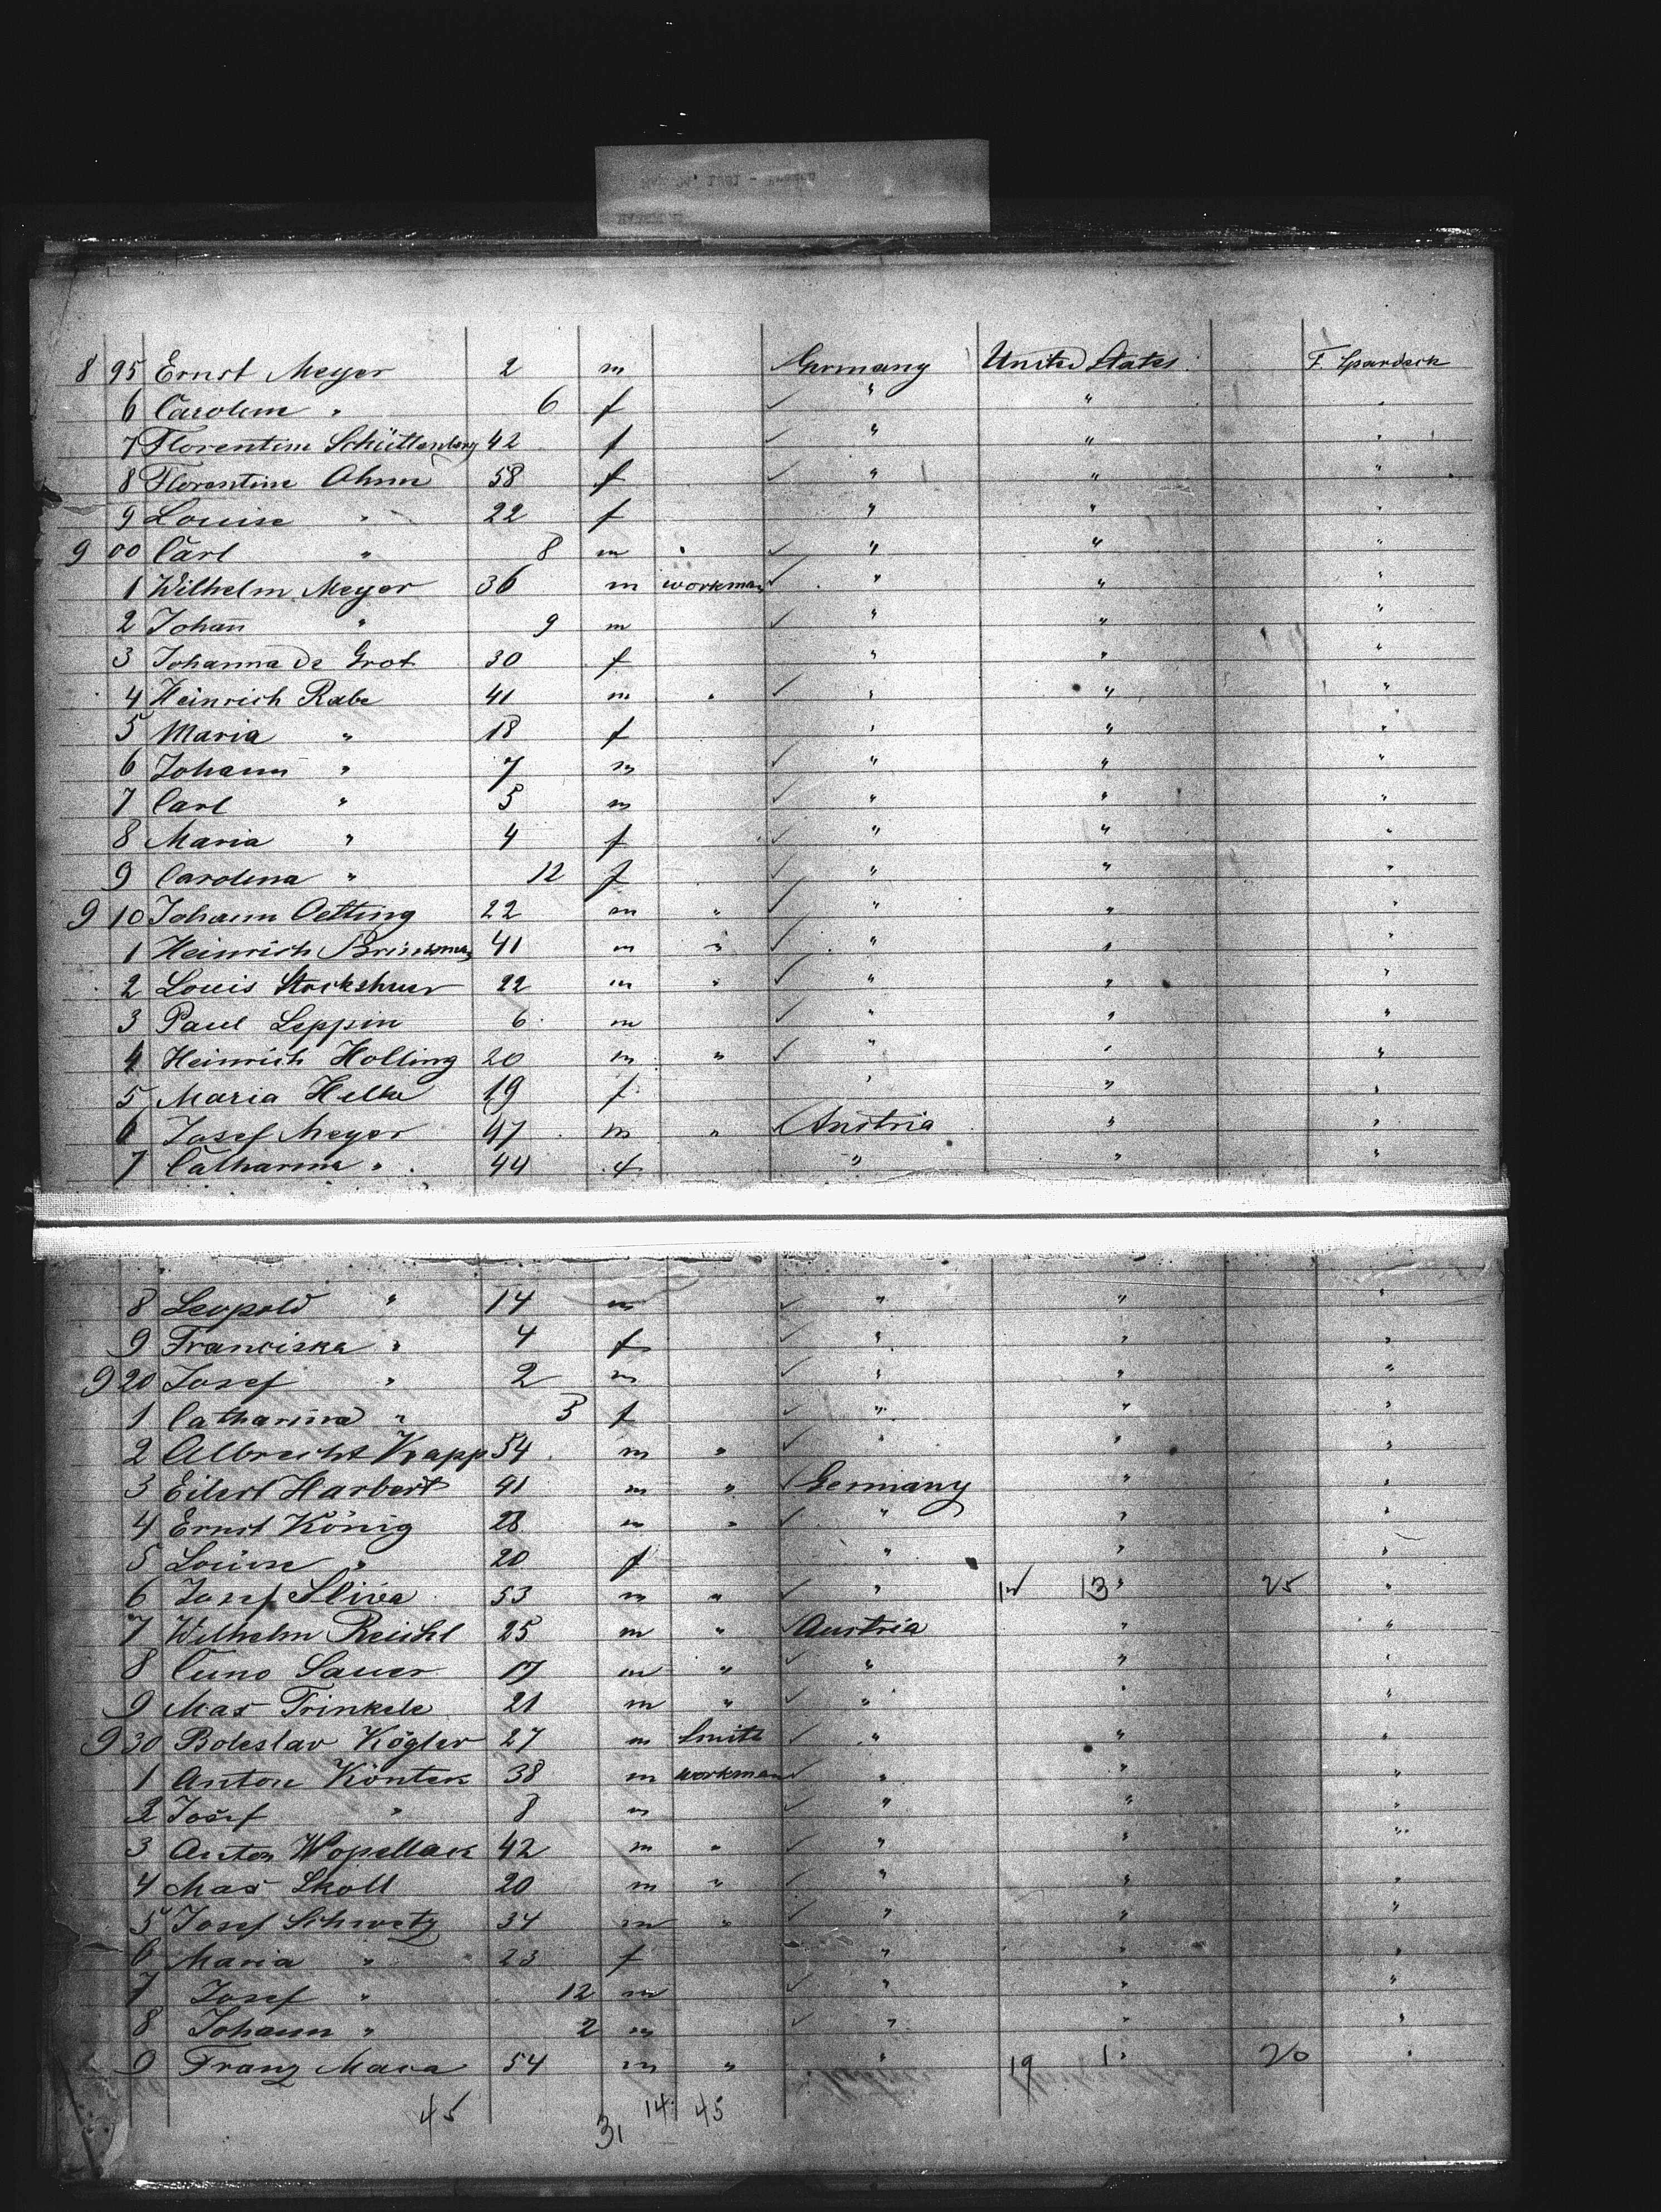 8 95 Ernst Meyer 2 m Germany United States F. Spardeck
6 Caroline " 6 f " " "
7 Florentine Schüttenberg 42 f " " "
8 Florentine Ohm 58 f " " "
9 Louise " 22 f " " "
9 00 Carl " 8 m " " "
1 Wilhelm Meyer 36 m workman " " "
2 Johan " 9 m " " "
3 Johanna de Grot 30 f " " "
4 Heinrich Rabe 41 m " " " "
5 Maria " 18 f " " "
6 Johann " 7 m " " "
7 Carl " 5 m " " "
8 Maria " 4 f " " "
9 Carolina " 12 f " " "
9 10 Johann Oetting 22 m " " " "
1 Heinrich Brinkman 41 m " " " "
2 Louis 22 m " " " "
3 Paul Leppin 6 m " " "
4 Heinrich Holling 20 m " " " "
5 Maria 19 f " " "
6 Josef Meyer 47 m " Austria " "
7 Catharina " 44 f " " "
8 Leopold " 14 m " " "
9 Franciska " 4 f " " "
9 20 Josef " 2 m " " "
1 Catharina " 3 f " " "
2 Albrecht Kapp 54 m " " " "
3 Eilert Harbert 41 m " Germany " "
4 Ernst König 28 m " " " "
5 Louise " 20 f " " "
6 Josef Sliva 53 m " " 13 " 25 "
7 Wilhelm Reichl 25 m " Austria " "
8 Cuno Sauer 17 m " " " "
9 Max Trinkele 21 m " " " "
9 30 Boleslav Kögler 27 m Smith " " "
1 Anton Köntek 38 m workman " " "
2 Josef " 8 m " " "
3 Anton Wopellak 42 m " " " "
4 Max Skoll 20 m " " " "
5 Josef Schwetz 34 m " " " "
6 Maria " 23 f " " "
7 Josef " 12 m " " "
8 Johann " 2 m " " "
9 Franz Maca 54 m " " 19 1 " 20 "
45 31 14 45